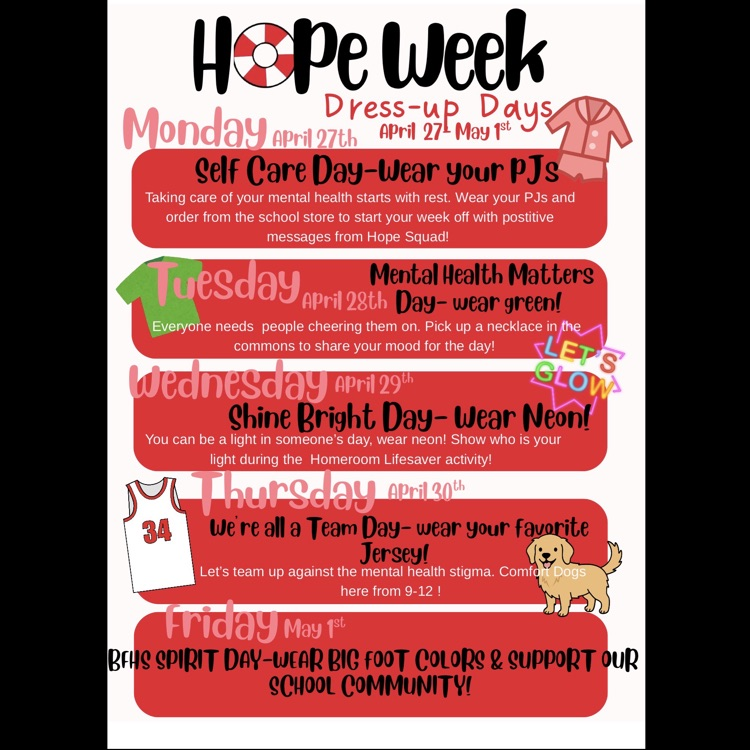 HOPe Week
Dress-up Days
April 27- May 1st
Monday April 27th
Self Care Day-Wear your PJs
Taking care of your mental health starts with rest. Wear your PJs and
order from the school store to start your week off with postitive
messages from Hope Squad!
Tuesday April 28th
Mental Health Matters
Day- wear green!
Everyone needs  people cheering them on. Pick up a necklace in the
commons to share your mood for the day!
LET'S
GLOW
Wednesday April 29th
Shine Bright Day- Wear Neon!
You can be a light in someone's day, wear neon! Show who is your
light during the  Homeroom Lifesaver activity!
Thursday April 30th
34
We're all a Team Day- wear your favorite
Jersey!
Let's team up against the mental health stigma. Comfort Dogs
here from 9-12 !
Friday May 1st
BFHS SPIRIT DAY-WEAR BIG FOOT COLORS & SUPPORT OUR
SCHOOL COMMUNITY!